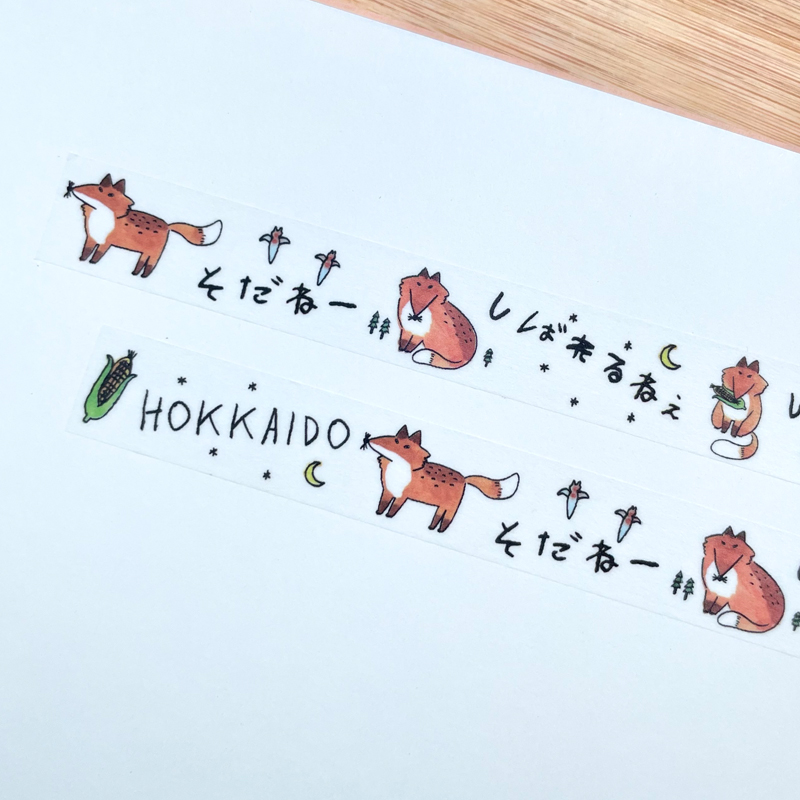 そだねー
しばれるねぇ
HOKKAIDO
そだねー